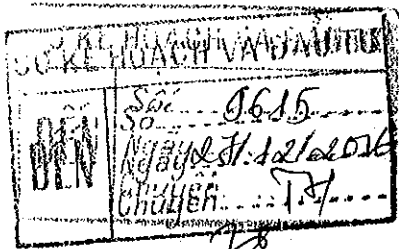 SỞ KẾ HOẠCH VÀ ĐẦU TƯ
ĐẾN
Số: 9615
Ngày 27/12/2016
Chuyển: TH